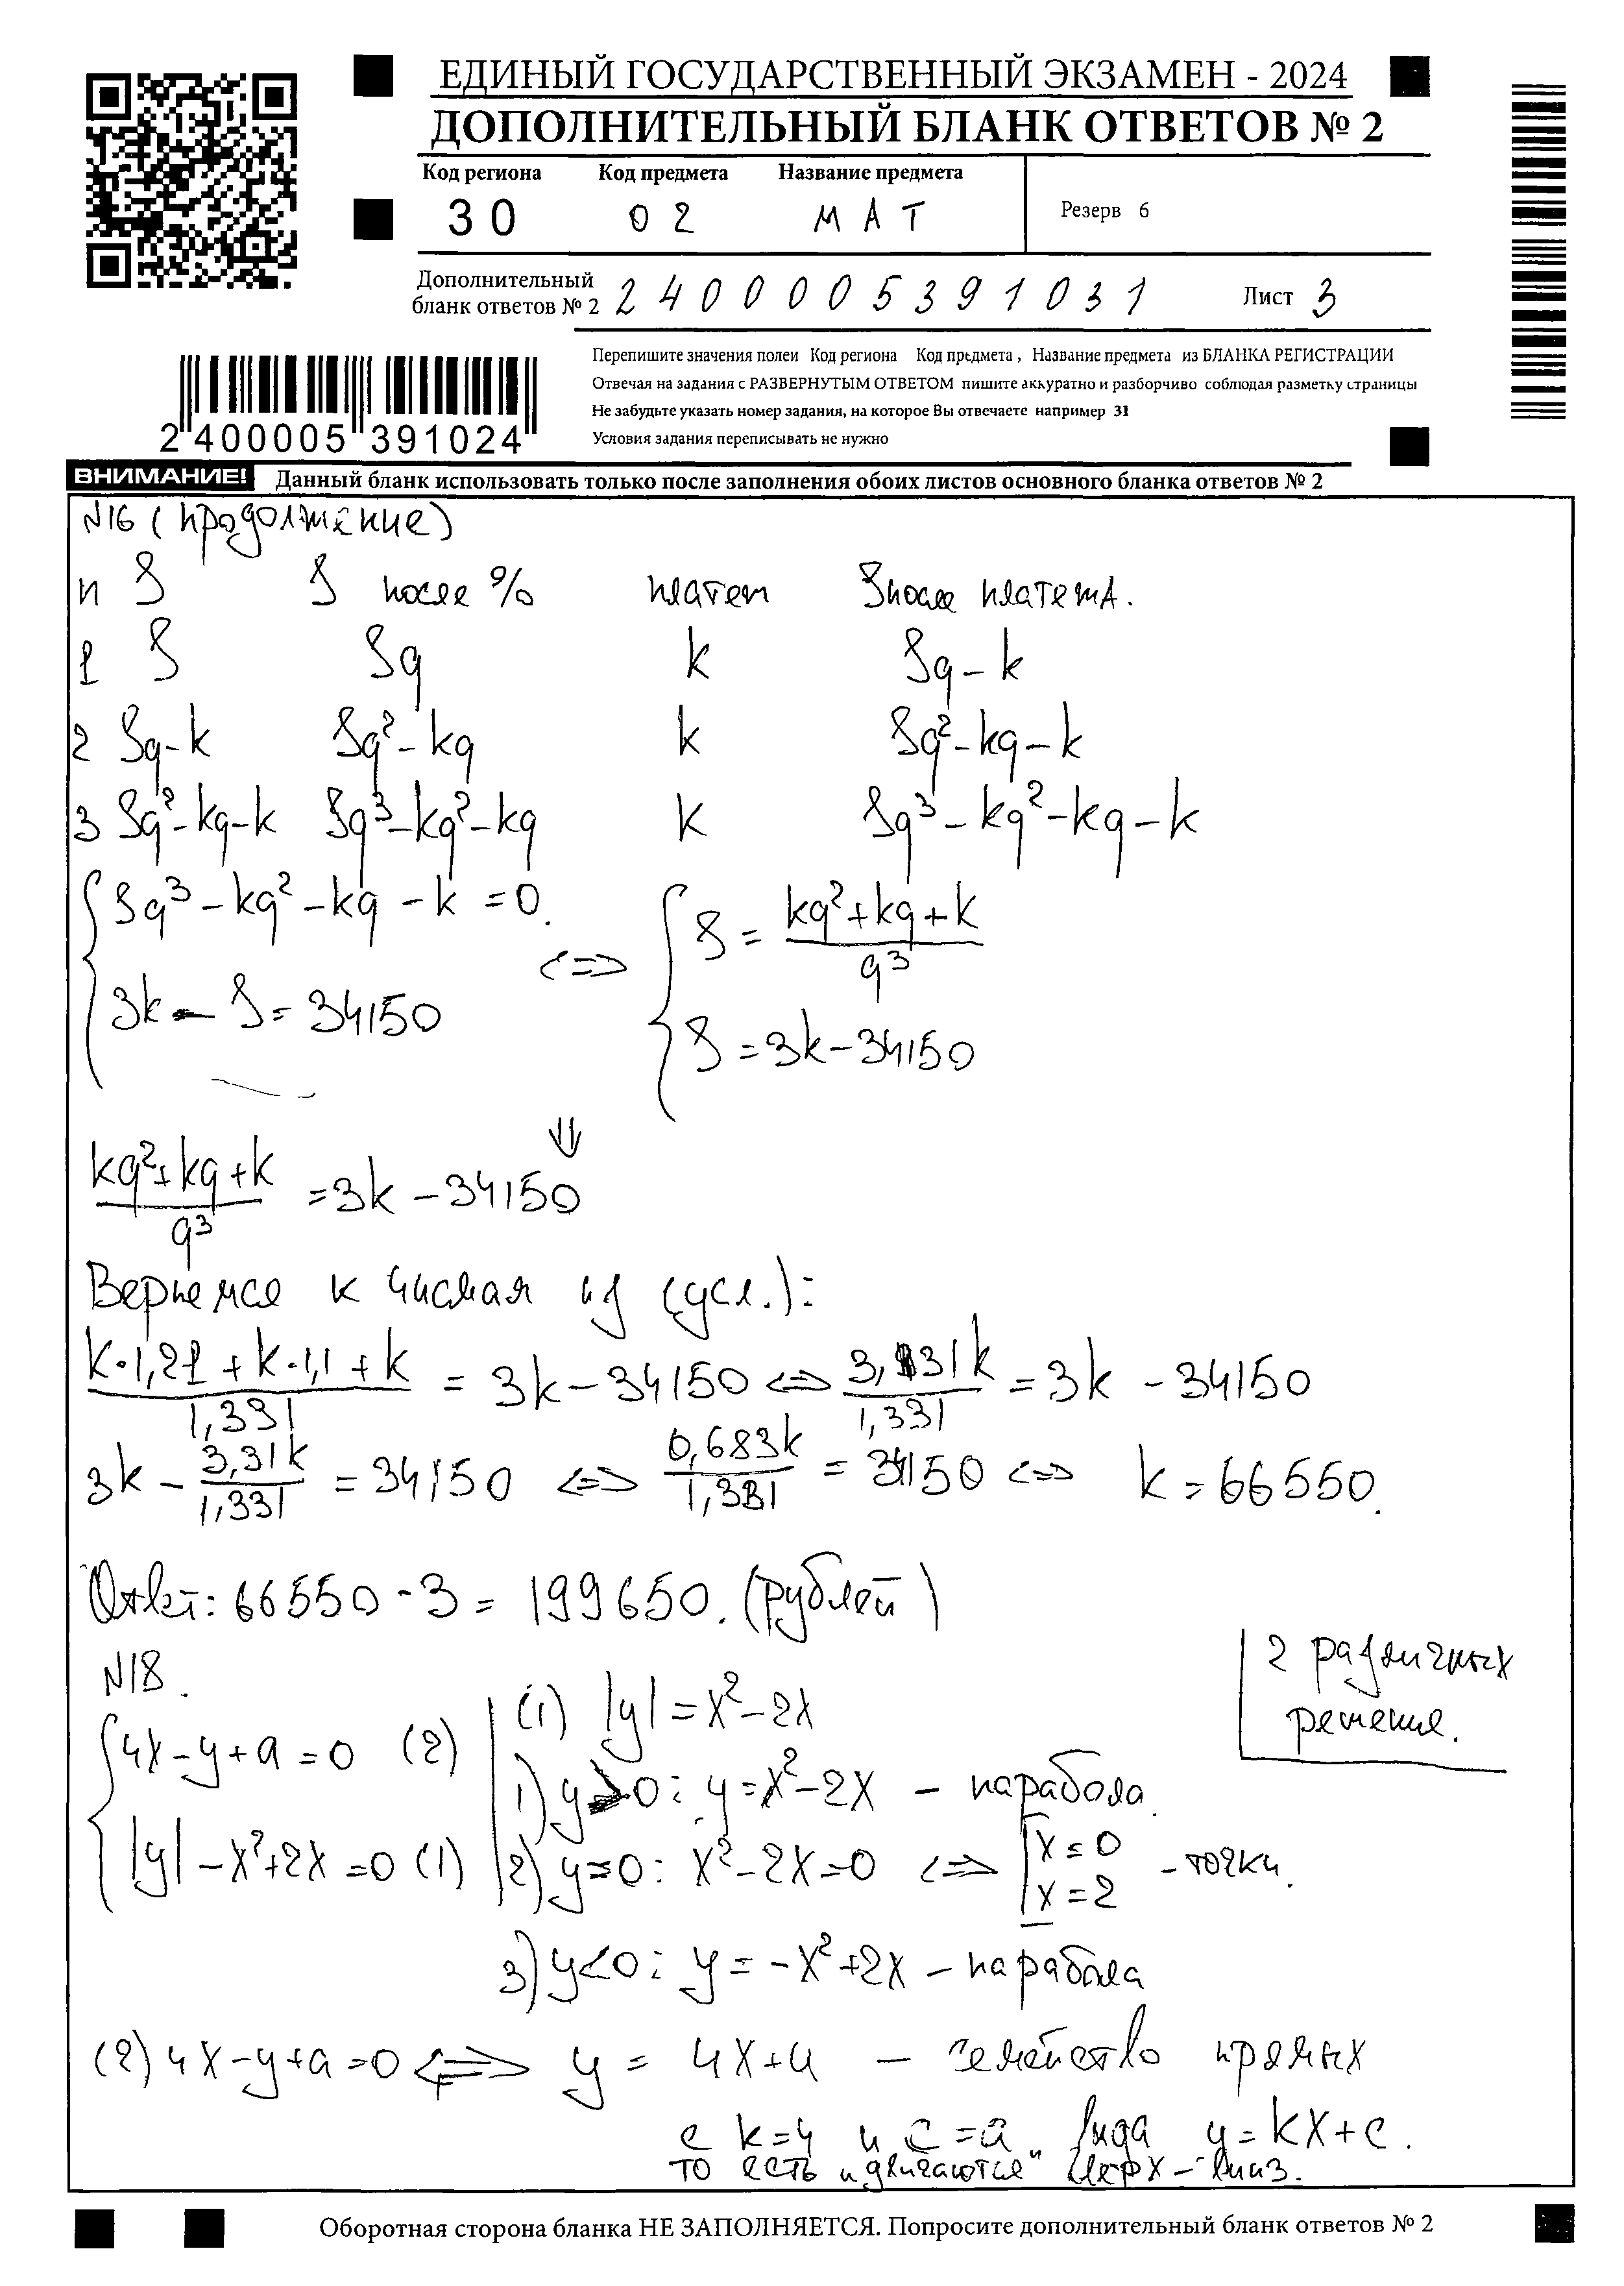 ЕДИНЫЙ ГОСУДАРСТВЕННЫЙ ЭКЗАМЕН - 2024
ДОПОЛНИТЕЛЬНЫЙ БЛАНК ОТВЕТОВ № 2
Код региона Код предмета Название предмета
Резерв 6
30 02 МАТ
Дополнительный бланк ответов № 2 2400005391031 Лист 3
Перепишите значения полей Код региона Код предмета , Название предмета из БЛАНКА РЕГИСТРАЦИИ
Отвечая на задания с РАЗВЕРНУТЫМ ОТВЕТОМ пишите аккуратно и разборчиво соблюдая разметку страницы
Не забудьте указать номер задания, на которое Вы отвечаете например 31
Условия задания переписывать не нужно
2400005 391024
ВНИМАНИЕ! Данный бланк использовать только после заполнения обоих листов основного бланка ответов № 2
N16 (продолжение)
n S S после % платеж S после платежа.
1 S Sq k Sq - k
2 Sq-k Sq² - kq k Sq² - kq - k
3 Sq²-kq-k Sq³-kq²-kq k Sq³ - kq² - kq - k
{ Sq³ - kq² - kq - k = 0. <=> { S = (kq²+kq+k)/q³
3k - S = 34150 S = 3k - 34150
⇓
(kq²+kq+k)/q³ = 3k - 34150
Вернемся к числам из (усл.):
(k·1,21 + k·1,1 + k)/1,331 = 3k - 34150 <=> 3,31k/1,331 = 3k - 34150
3k - 3,31k/1,331 = 34150 <=> 0,683k/1,331 = 34150 <=> k = 66550.
Ответ: 66550·3 = 199650. (рублей)
N18.
2 различных
решения.
{ 4x - y + a = 0 (2)
|y| - x² + 2x = 0 (1)
(1) |y| = x² - 2x
1) y>0: y = x² - 2x - парабола.
2) y=0: x² - 2x = 0 <=> [ x = 0
x = 2 - точки.
3) y<0: y = -x² + 2x - парабола
(2) 4x - y + a = 0 <=> y = 4x + a - семейство прямых
с k=4 и c=a, вида y = kx + c.
то есть "двигаются" вверх-вниз.
Оборотная сторона бланка НЕ ЗАПОЛНЯЕТСЯ. Попросите дополнительный бланк ответов № 2